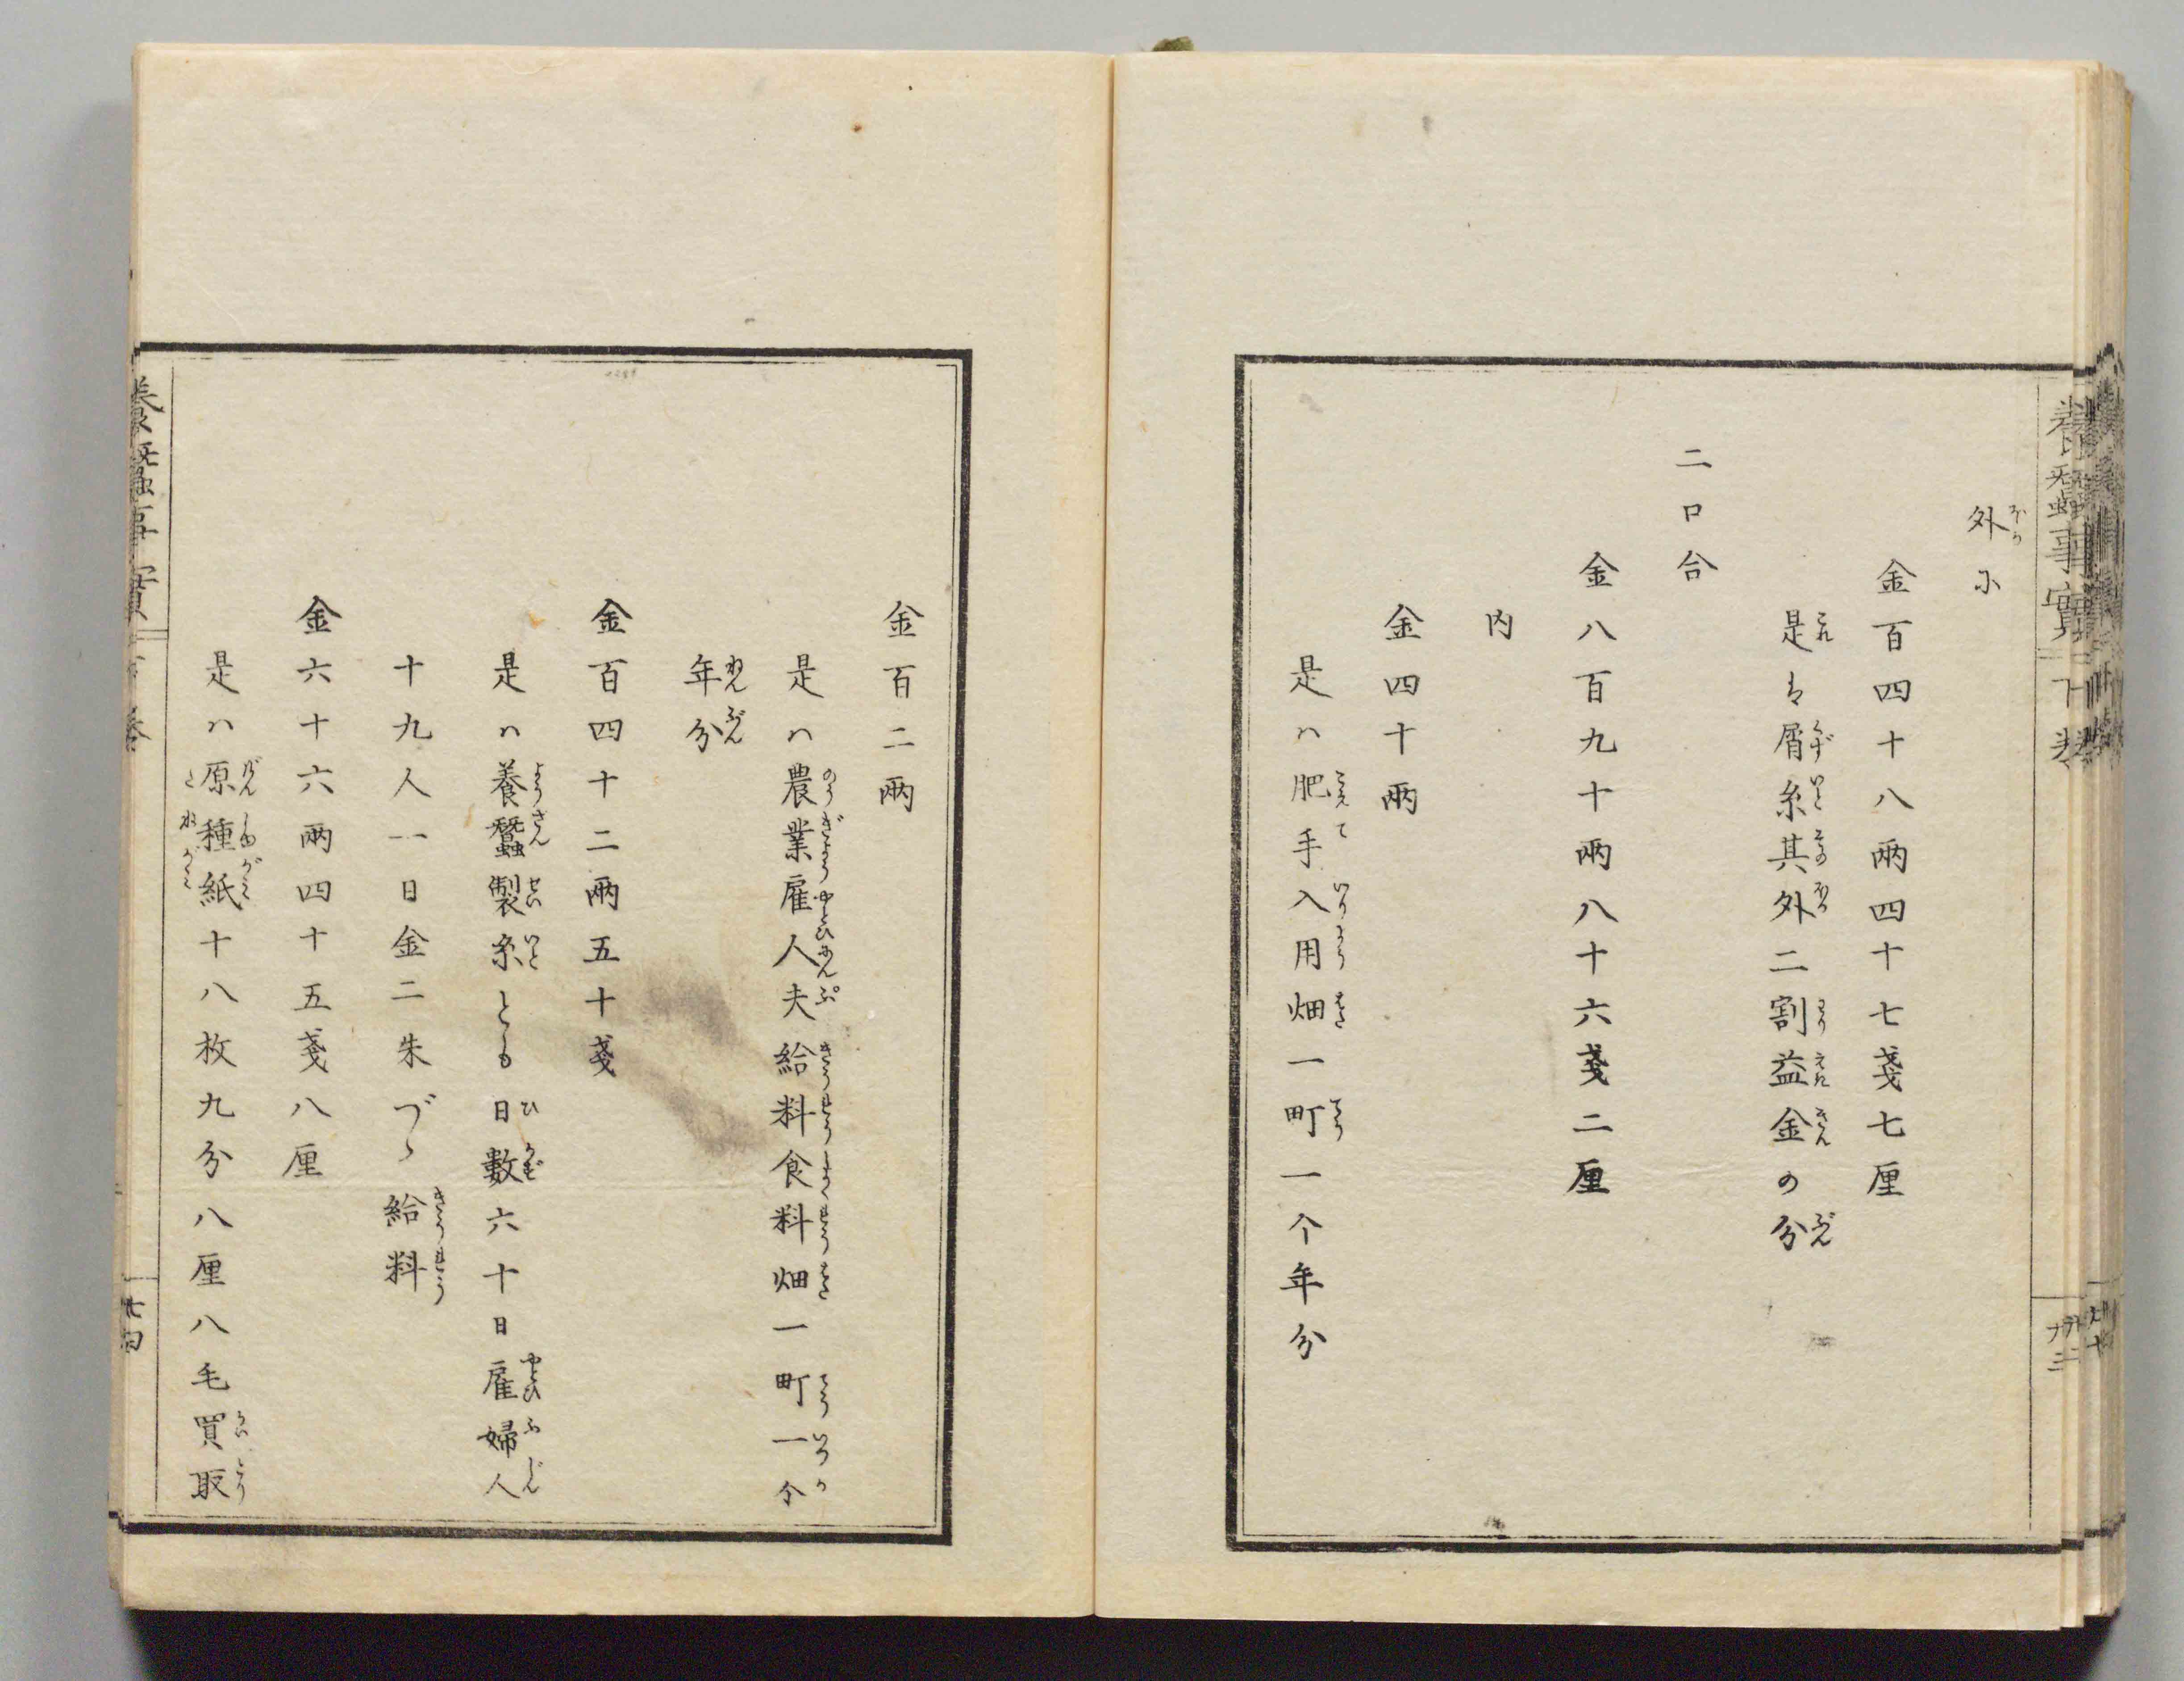 外に
金百四十八兩四十七戔七厘
是は屑糸其外二割益金の分
二口合
金八百九十兩八十六戔二厘
内
金四十兩
是ハ肥手入用畑一町一个年分
養蠶事實
金百二兩
是ハ農業雇人夫給料食料畑一町一个
年分
金百四十二兩五十戔
是ハ養蠶製糸とも日數六十日雇婦人
十九人一日金二朱づゝ給料
金六十六兩四十五戔八厘
是ハ原種紙十八枚九分八厘八毛買取
養蠶事實